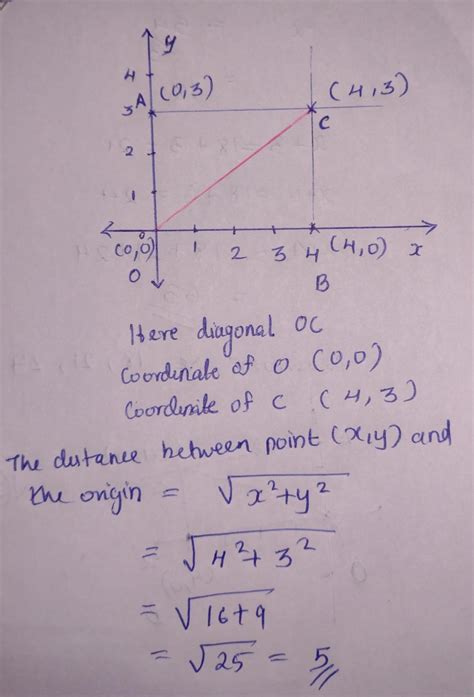 y
4
A (0,3) (4,3)
3
C
2
1
(0,0) 1 2 3 4 (4,0) x
O B
Here diagonal OC
Coordinate of O (0,0)
Coordinate of C (4,3)
The distance between point (x,y) and
the origin = √x²+y²
= √4²+3²
= √16+9
= √25 = 5